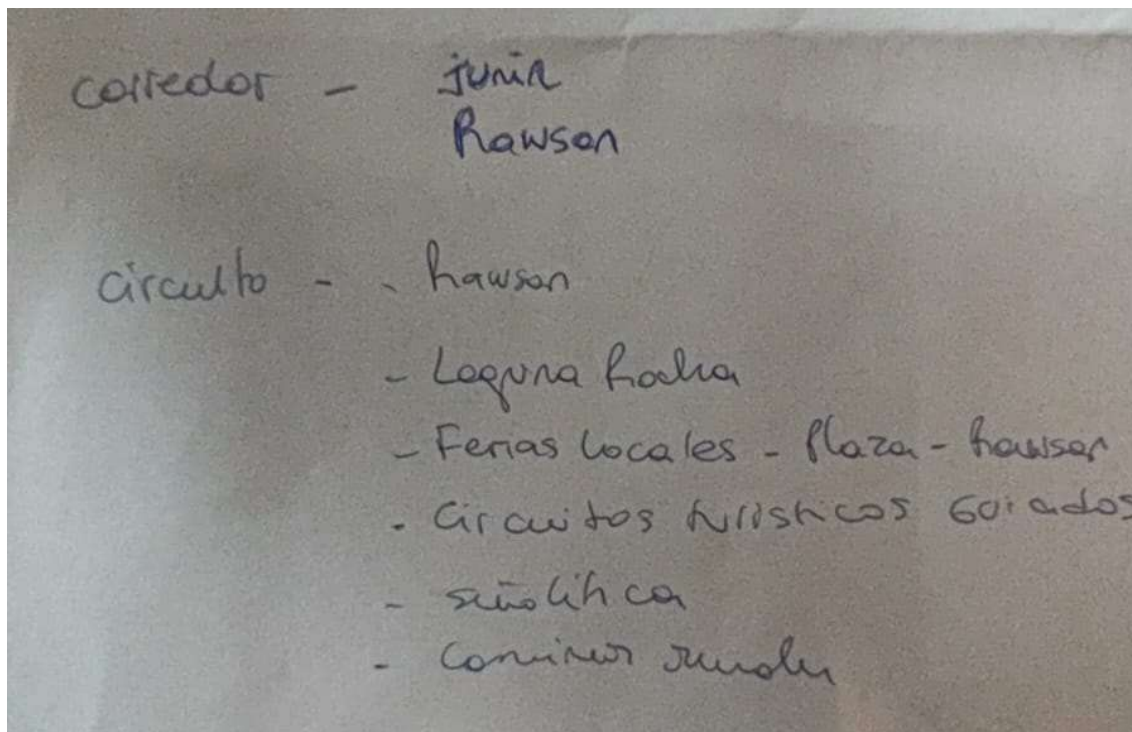 corredor - junin
Rawson
circuito - - Rawson
- Laguna Rocha
- Ferias locales - Plaza - Rawson
- Circuitos turísticos Guiados
- señalítica
- Caminos rurales